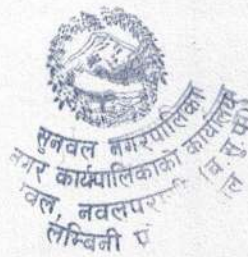 सुनवल नगरपालिका
नगर कार्यपालिकाको कार्यालय
नवलपर
लुम्बिनी